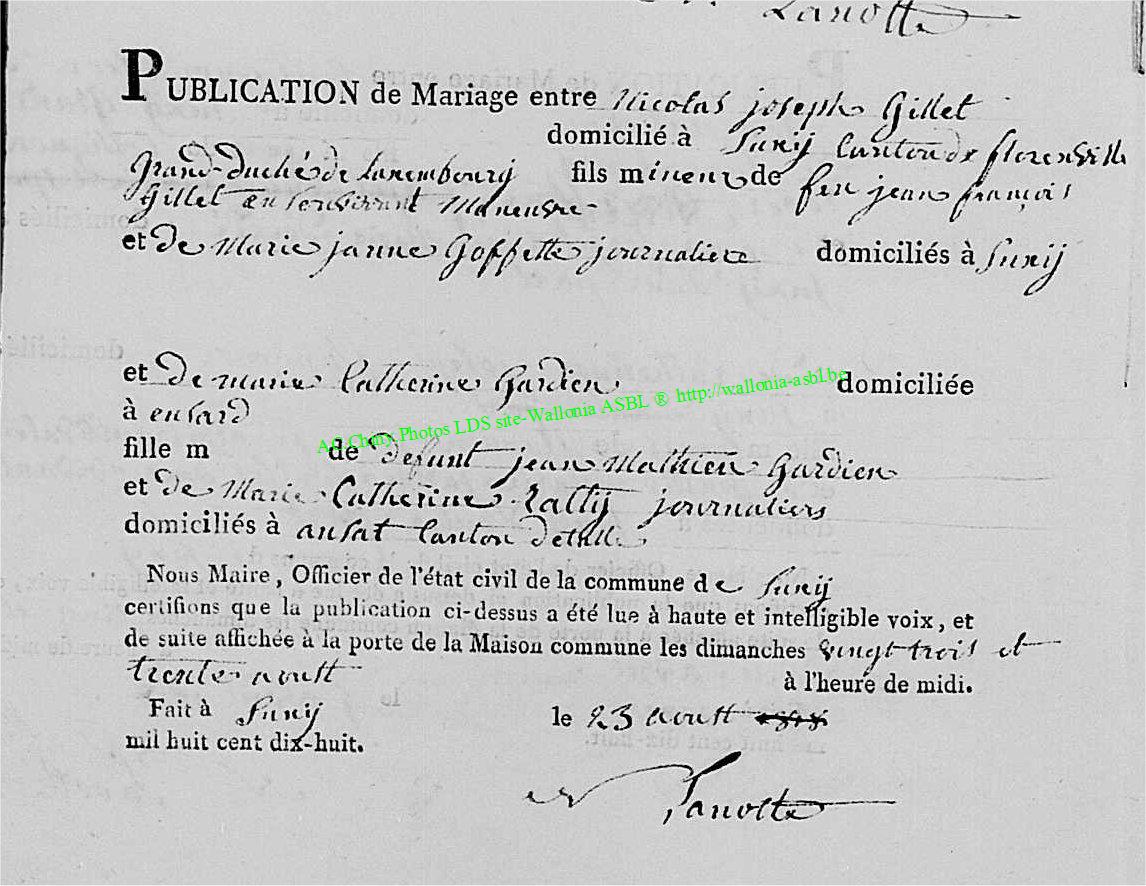 Lanotte
PUBLICATION de Mariage entre Nicolas joseph Gillet
domicilié à Suxij Canton de florenville
grand-duché de Luxembourg fils mineur de feu jean françois
Gillet en son vivant Maneuvre
et de Marie janne Goffette journaliere domiciliés à Suxij
et de marie Catherine Gardien domiciliée
à ensard
AC Chiny Photos LDS site-Wallonia ASBL ® http://wallonia-asbl.be
fille m de defunt jean Mathieu Gardien
et de Marie Catherine journaliers
domiciliés à ansat Canton
Nous Maire, Officier de l'état civil de la commune de Suxij
certifions que la publication ci-dessus a été lue à haute et intelligible voix, et
de suite affichée à la porte de la Maison commune les dimanches vingt trois et
trente aoutt à l'heure de midi.
Fait à Suxij le 23 aoutt
mil huit cent dix-huit.
Lanotte